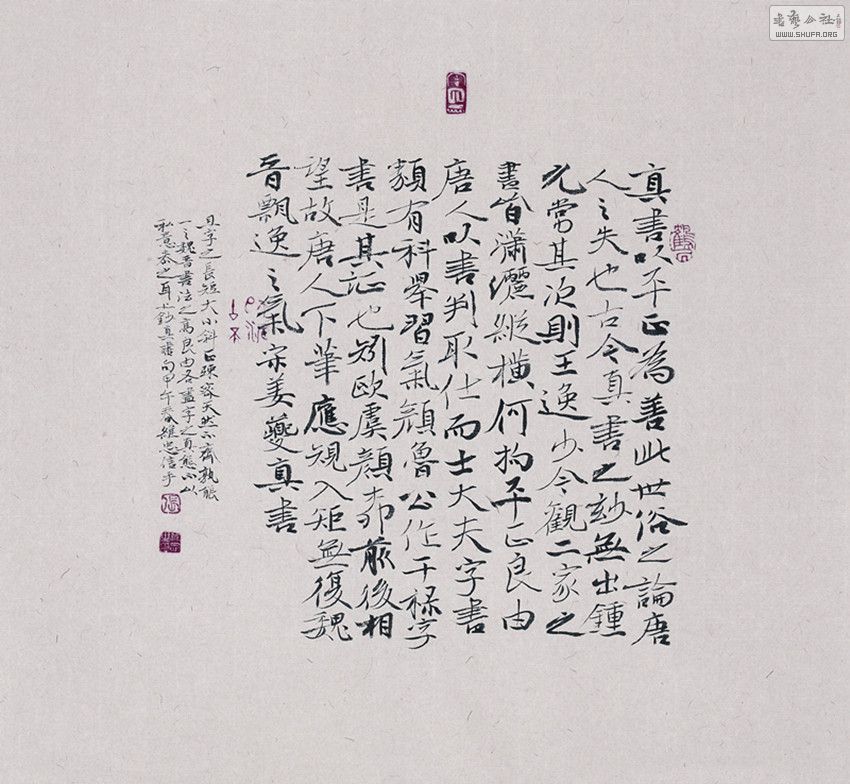 真書以平正為善此世俗之論唐
人之失也古今真書之玅無出鍾
元常其次則王逸少今觀二家之
書皆瀟灑縱橫何拘平正良由
唐人以書判取仕而士大夫字書
類有科舉習氣顔魯公作干祿字
書是其証也矧歐虞顔柳前後相
望故唐人下筆應規入矩無復魏
晉飄逸之氣宋姜夔真書
且字之長短大小斜正疎密天然不齊孰能
一之魏晉書法之高良由各盡字之真態不以
私意參之耳上鈔真書句甲午春維忠信手
書藝公社
WWW.SHUFA.ORG